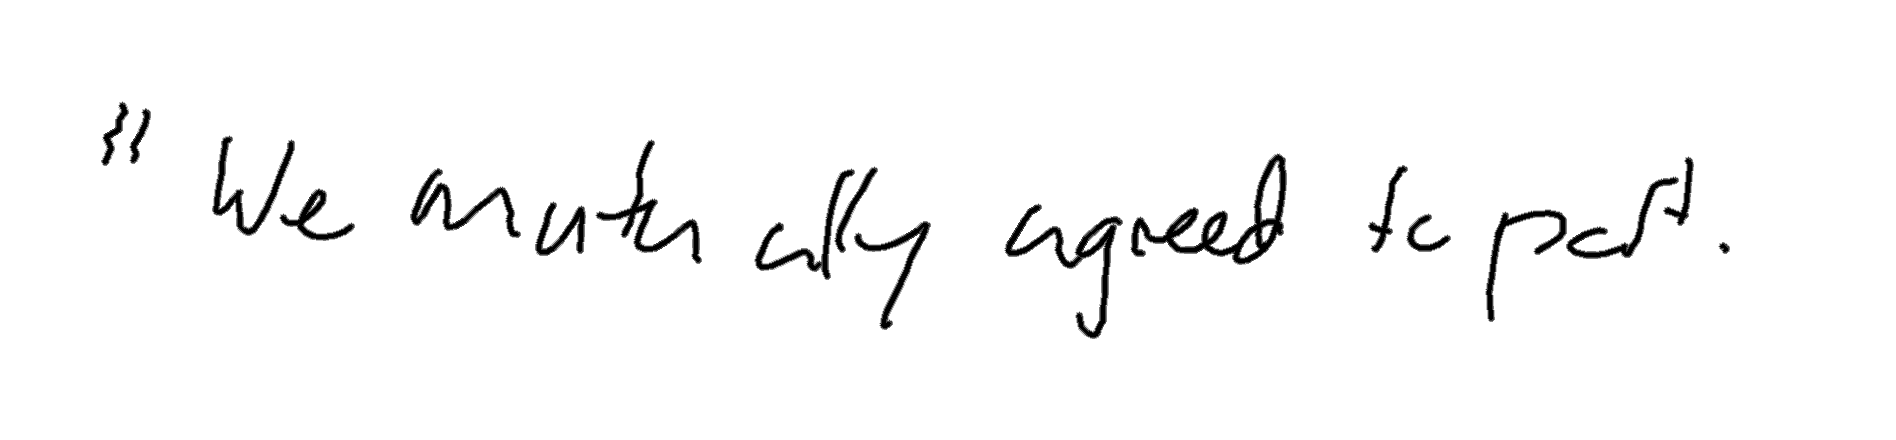 " We mutually agreed to part.